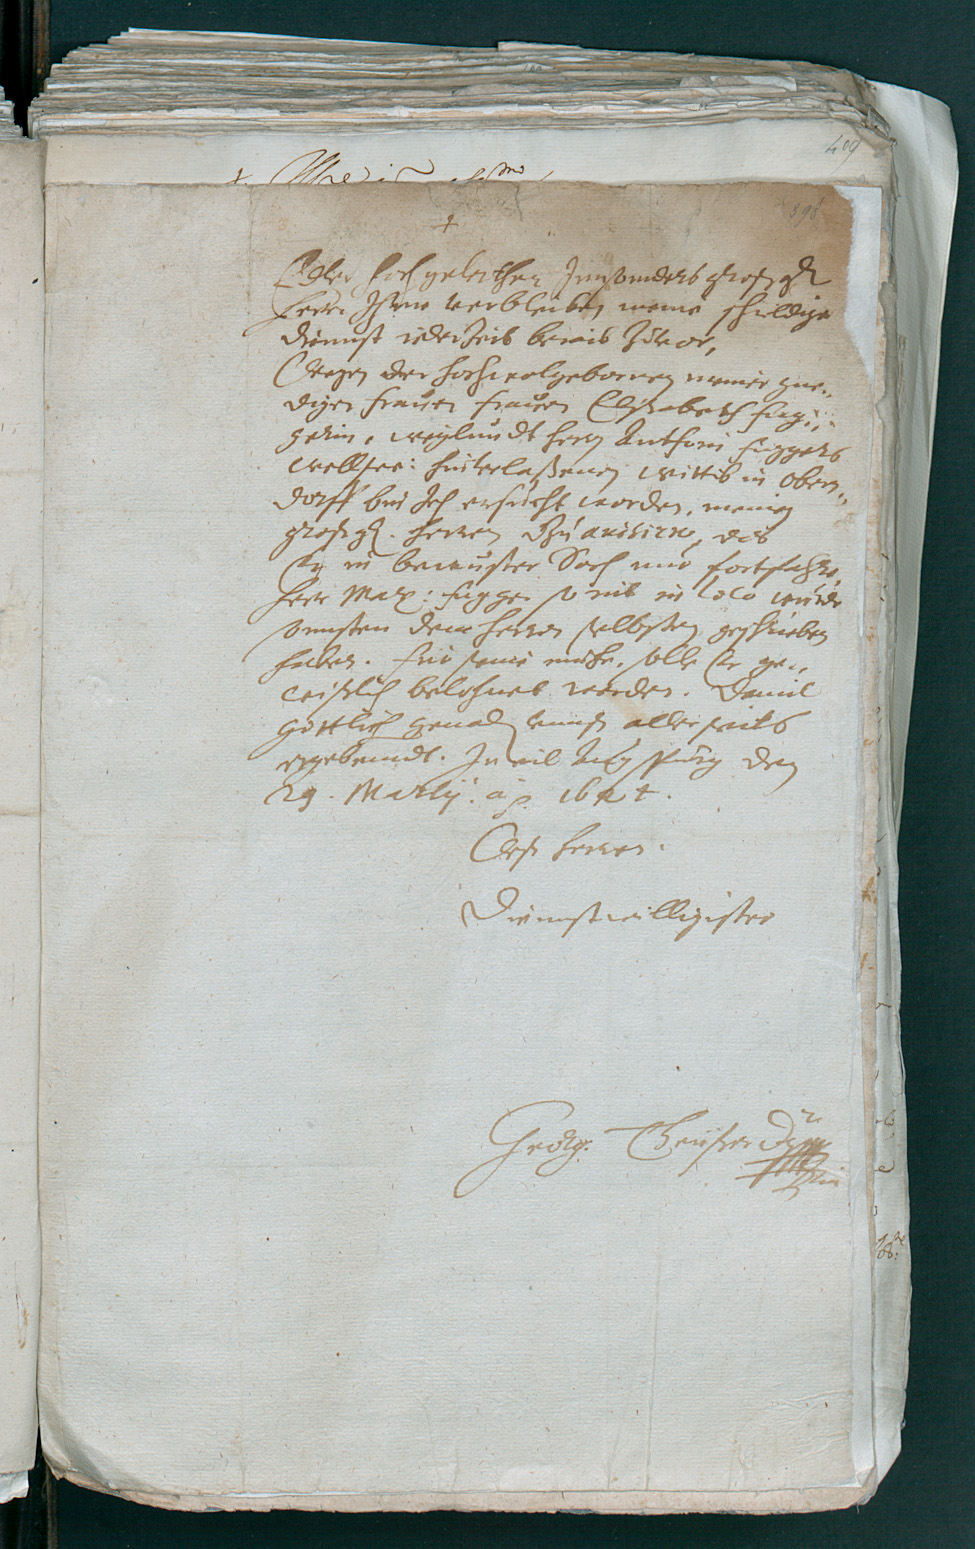 409
398
+
Edler hochgelerther Innsonders großg.
Herr Ihme verbleiben meine schuldige
dienst iederzeit beraits zuvor,
Wegen der hochwolgebornen meiner gne„
digen frauen frauen Elisabeth fug„
gerin, weylundt herrn Anthoni fuggers
seel: hinterlaßenen wittib in Obern„
dorff bin Ich ersucht worden, meinen
großg. herren zu avisirn, das
Er in bewuster Sach nur fortfahre,
herr Max: fugger so nit in loco würdt
sonsten dem herren selbsten geschrieben
haben. für seine mühe, solle Er ge„
wißlich belohnet werden. Damit
göttlich genaden unnß allerseits
ergebendt. In eil Augspurg den
29. Martij. ao. 1624.
Deß herren.
Dienstwilligister
Georg.